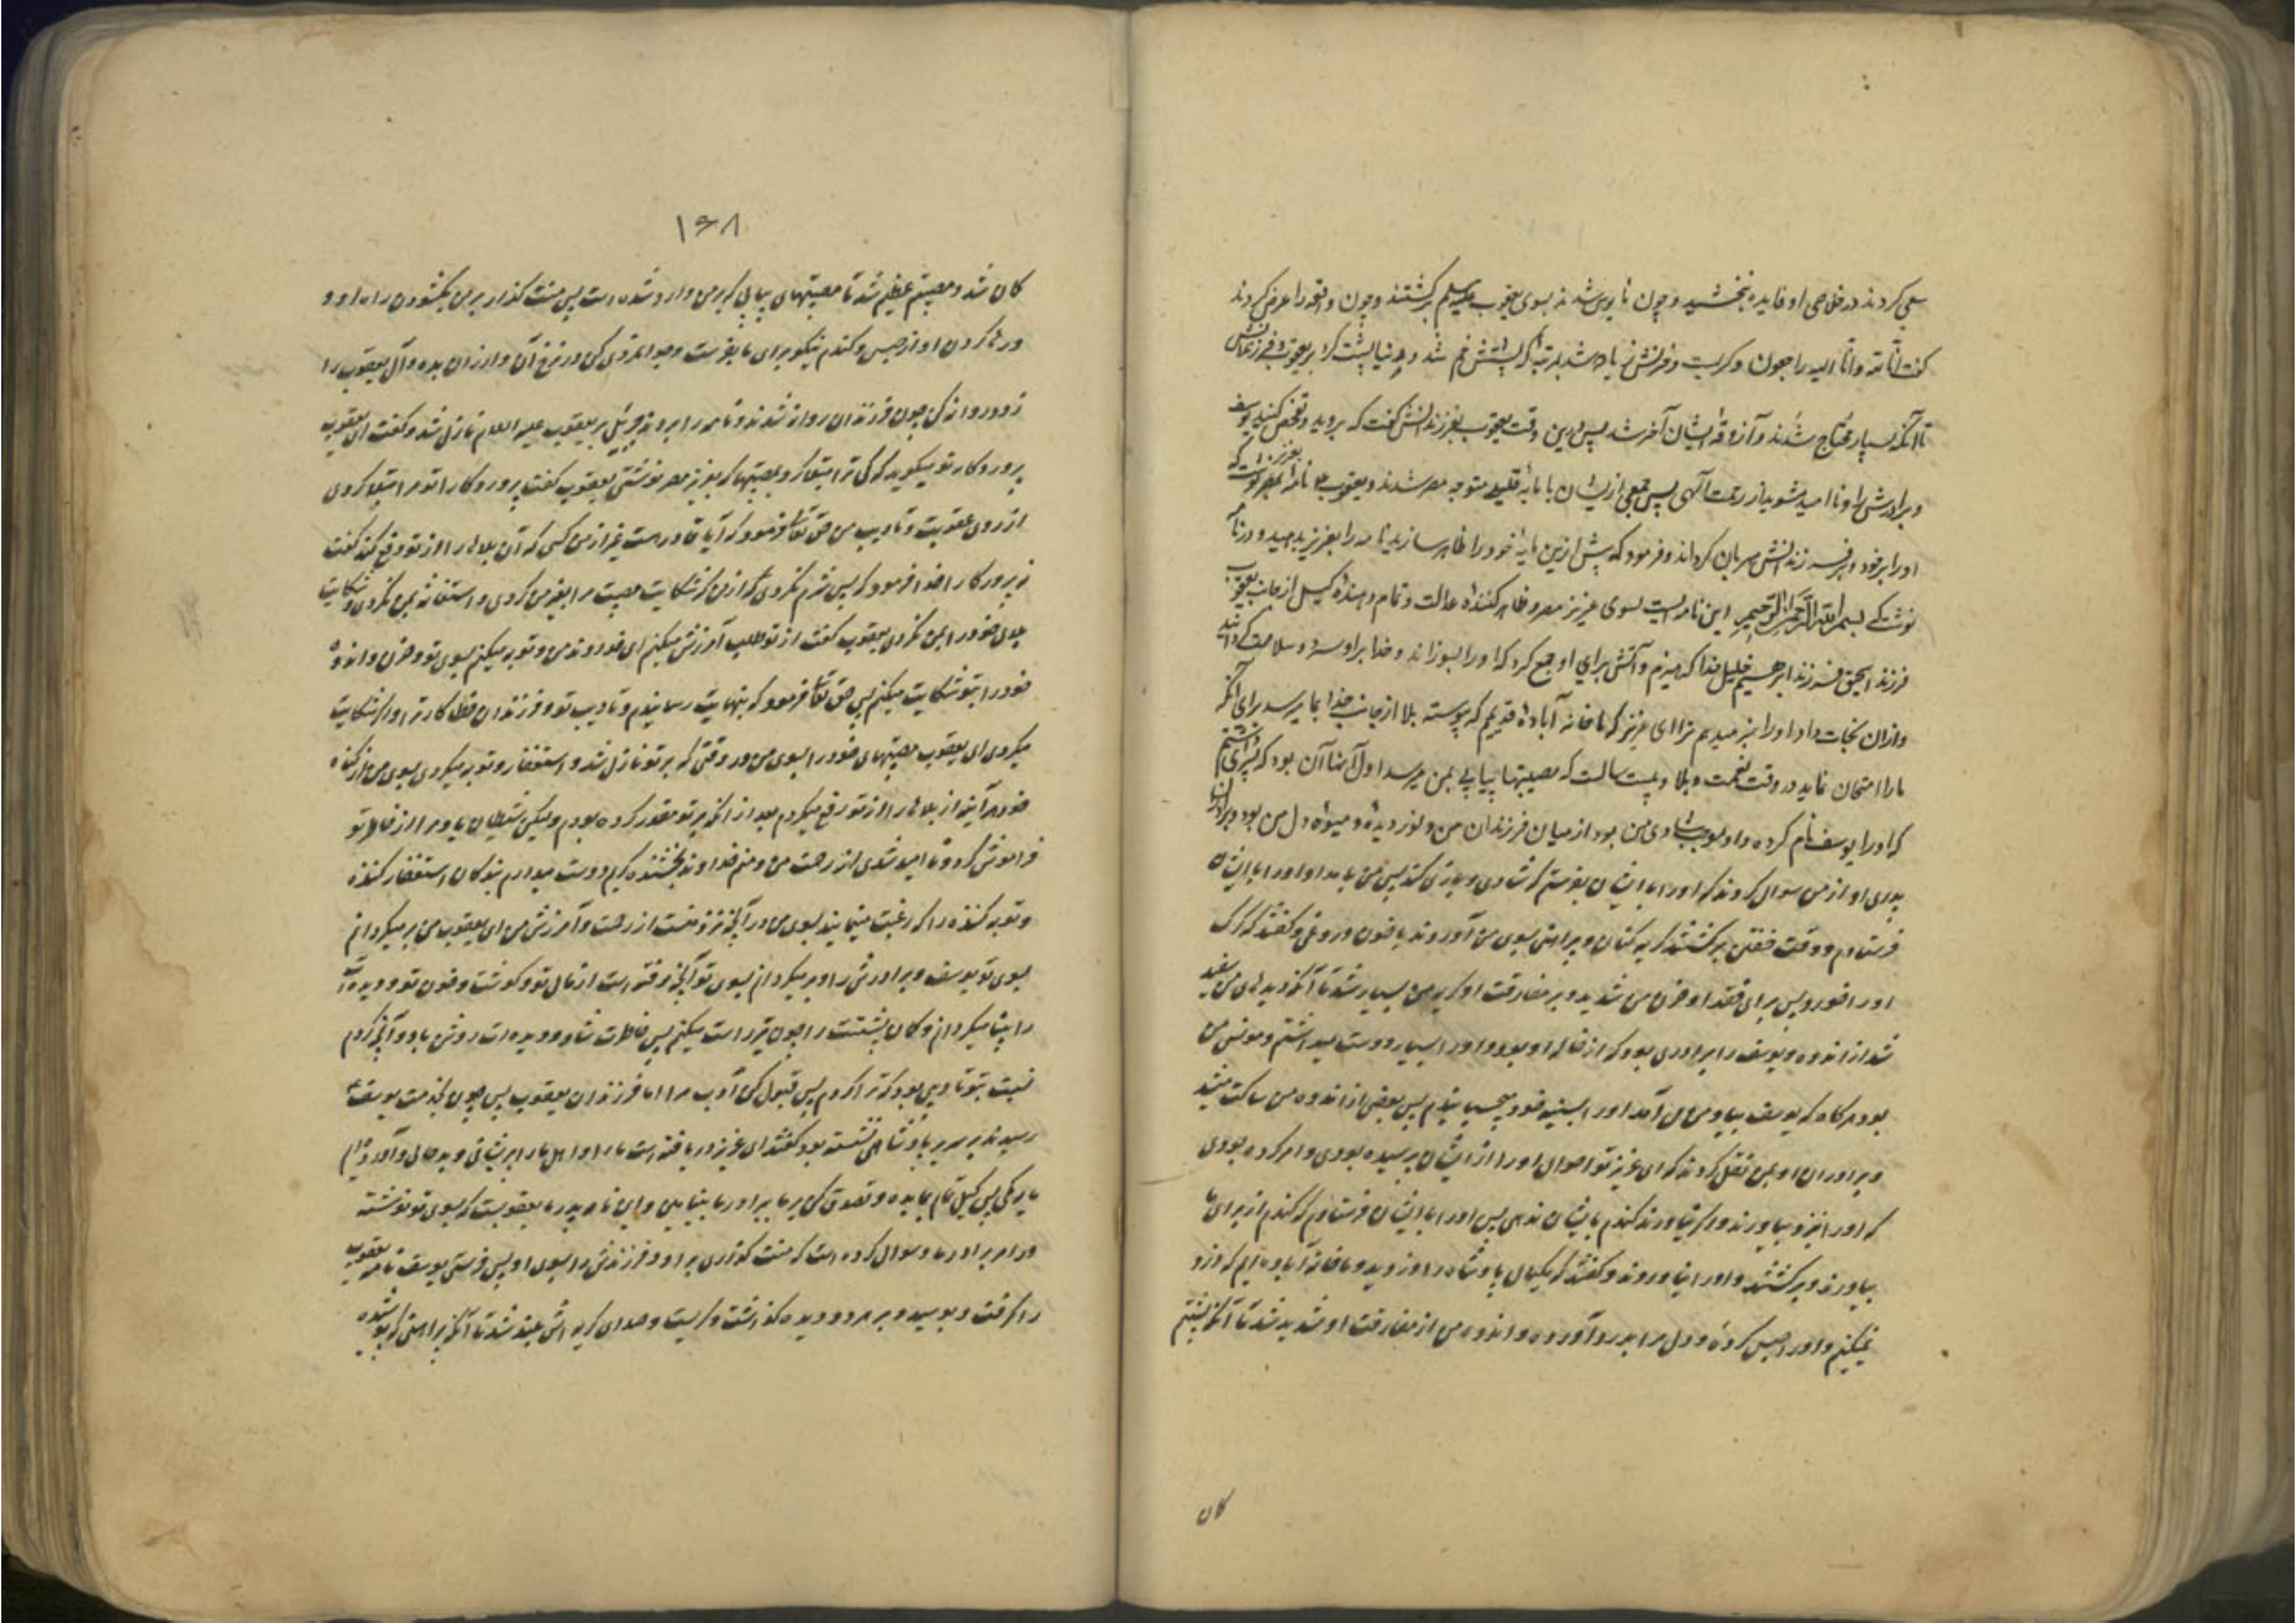 سعی کردند در خلاصی او فایده نبخشید و چون ناامید شدند بسوی یعقوب علیه السلم برگشتند و چون واقعه را عرض کردند
گفت انا لله وانا الیه راجعون و گریست و حزنش زیاده شد بمرتبهٔ که پشتش خم شد و دنیا پشت کرد بر یعقوب و فرزندانش
تا آنکه بسیار محتاج شدند و آزوقهٔ ایشان آخر شد پس درین وقت یعقوب بفرزندانش گفت که بروید و تفحص کنید یوسف
و برادرش را و ناامید مشوید از رحمت آلهی پس جمعی از ایشان با مایهٔ قلیلی متوجه مصر شدند و یعقوب ع نامهٔ بعزیز مصر نوشت که
او را بر خود و بر فرزندانش مهربان گرداند و فرمود که پیش ازین مایهٔ خود را ظاهر سازید نامه را بعزیز بدهید و در نامه
نوشت که بسم الله الرحمن الرحیم این نامه ایست بسوی عزیز مصر و ظاهر کنندهٔ عدالت و تمام دهندهٔ کیل از جانب یعقوب
فرزند اسحق فرزند ابرهیم خلیل خدا که هیزم و آتش برای او جمع کرد که او را بسوزاند و خدا بر او سرد و سلامت گردانید
و ازان نجات داد او را خبر میدهم ترا ای عزیز که ما خانه آبادهٔ قدیمیم که پیوسته بلا از جانب خدا بما میرسد برای آنکه
ما را امتحان نماید در وقت نعمت و بلا و بیست سالست که مصیبتها پیاپی بمن میرسد اول آنها آن بود که پسری داشتم
که او را یوسف نام کرده و او موجب شادی من بود از میان فرزندان من و نور دیدهٔ و میوهٔ دل من بود و برادران
پدری او از من سوال کردند که او را با ایشان بفرستم که شادی و بازی کند پس من بامداد او را با ایشان
فرستادم و وقت خفتن برگشتند گریه کنان و پیراهنی بسوی من آوردند با خون دروغی و گفتند که گرگ
او را خورد پس برای فقد او حزن من شدید و بر مفارقت او گریهٔ من بسیار شد تا آنکه دیدهای من سفید
شد از اندوه و یوسف را برادری بود که از خالهٔ او بود و او را بسیار دوست میداشتم و مونس من
بود هرگاه که یوسف بیاد من می آمد او را بسینهٔ خود میچسبانیدم پس بعضی از اندوه من ساکت میشد
و برادران او بمن نقل کردند که ای عزیز تو احوال او را از ایشان پرسیده بودی و امر کرده بودی
که او را نزد تو بیاورند و اگر نیاورند گندم بایشان ندهی پس او را با ایشان فرستادم که گندم از برای ما
بیاورند و برگشتند و او را نیاوردند و گفتند که مکیال پادشاه را دزدید و ما خانه آبادهٔ ایم که دزدی
نمیکنیم و او را حبس کردهٔ و دل مرا بدرد آورده و اندوه من از مفارقت او شدید شد تا آنکه پشتم
کان
۱۶۸
کان شد و مصیبتم عظیم شد تا مصیبتهای پیاپی که بر من وارد شده است پس منت گذار بر من بگشودن راه او و
رها کردن او از حبس و گندم نیکو برای ما بفرست و جوانمردی کن در نرخ آن و ارزان بده و آل یعقوب را
زود روانه کن چون فرزندان روانه شدند و نامه را بردند جبرئیل بر یعقوب علیه السلام نازل شد و گفت ای یعقوب
پروردگار تو میگوید که کی ترا مبتلا کرد بمصیبتها که بعزیز مصر نوشتی یعقوب گفت پروردگارا تو مرا مبتلا کردی
از روی عقوبت و تادیب من حق تعالی فرمود که آیا قادر هست غیر از من کسی که آن بلاها را از تو دفع کند گفت
نه پروردگارا خدا فرمود که پس شرم نکردی که از من شکایت مصیبت مرا بغیر من کردی و استغاثه بمن نکردی و شکایت
بلای خود را بمن نکردی یعقوب گفت از تو طلب آمرزش میکنم ای خداوند من و توبه میکنم بسوی تو و حزن و اندوه
خود را بتو شکایت میکنم پس حق تعالی فرمود که بنهایت رسانیدم تادیب تو و فرزندان خطا کار ترا و اگر شکایت
میکردی ای یعقوب مصیبتهای خود را بسوی من در وقتی که بر تو نازل شد و استغفار و توبه میکردی بسوی من از گناه
خود هر آینه آن بلاها را از تو رفع میکردم بعد از آنکه بر تو مقدر کرده بودم ولیکن شیطان یاد مرا از خاطر تو
فراموش کرد و ناامید شدی از رحمت من و منم خداوند بخشندهٔ کریم دوست میدارم بندگان استغفار کننده
و توبه کننده را که رغبت مینمایند بسوی من در آنچه نزد منست از رحمت و آمرزش من ای یعقوب من بر میگردانم
بسوی تو یوسف و برادرش را و بر میگردانم بسوی تو آنچه رفته است از مال تو و گوشت و خون تو و دیده ات
را بینا میگردانم و کمان پشتت را چون تیر راست میکنم پس خاطرت شاد و دیده ات روشن باد و آنچه کردم
نسبت بتو تادیبی بود که ترا کردم پس قبول کن ادب مرا اما فرزندان یعقوب پس چون بخدمت یوسف ع
رسیدند بر سریر پادشاهی نشسته بود گفتند ای عزیز دریافته است ما را و اهل ما را پریشانی و بد حالی و آورده ایم
مایهٔ کمی پس کیل تمام بما بده و تصدق کن بر ما برادر ما بنیامین و این نامهٔ پدر ما یعقوبست که بسوی تو نوشته
در امر برادر ما و سوال کرده است که منت گذاری بر او و فرزندش را بسوی او پس فرستی یوسف نامه یعقوب
را گرفت و بوسید و بر هر دو دیده گذاشت و گریست و صدای گریه اش بلند شد تا آنکه پیراهنی که پوشیده